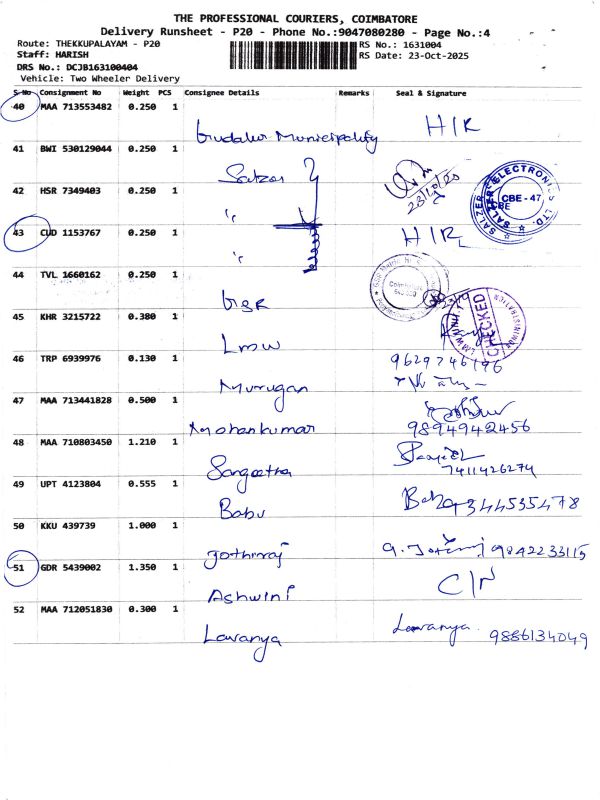 THE PROFESSIONAL COURIERS, COIMBATORE
Delivery Runsheet - P20 - Phone No.:9047080280 - Page No.:4
Route: THEKKUPALAYAM - P20
RS No.: 1631004
Staff: HARISH
RS Date: 23-Oct-2025
DRS No.: DCJB163100404
Vehicle: Two Wheeler Delivery
S No Consignment No Weight PCS Consignee Details Remarks Seal & Signature
40 MAA 713553482 0.250 1
Gudalur Municipality H/R
41 BWI 530129044 0.250 1
Salzer
23/10/20
42 HSR 7349403 0.250 1
"
SALZER ELECTRONICS LTD.
CBE - 47
CBE
43 CUD 1153767 0.250 1
" H/R
44 TVL 1660162 0.250 1
GSR
Coimbatore
45 KHR 3215722 0.380 1
LMW
CHECKED
46 TRP 6939976 0.130 1
Murugan
9629746196
47 MAA 713441828 0.500 1
Mohankumar
9894942456
48 MAA 710803450 1.210 1
Sangeetha
7411426274
49 UPT 4123804 0.555 1
Babu
50 KKU 439739 1.000 1
Jothiraj
9842233115
51 GDR 5439002 1.350 1
Ashwini C/N
52 MAA 712051830 0.300 1
Lavanya Lavanya 9886134049